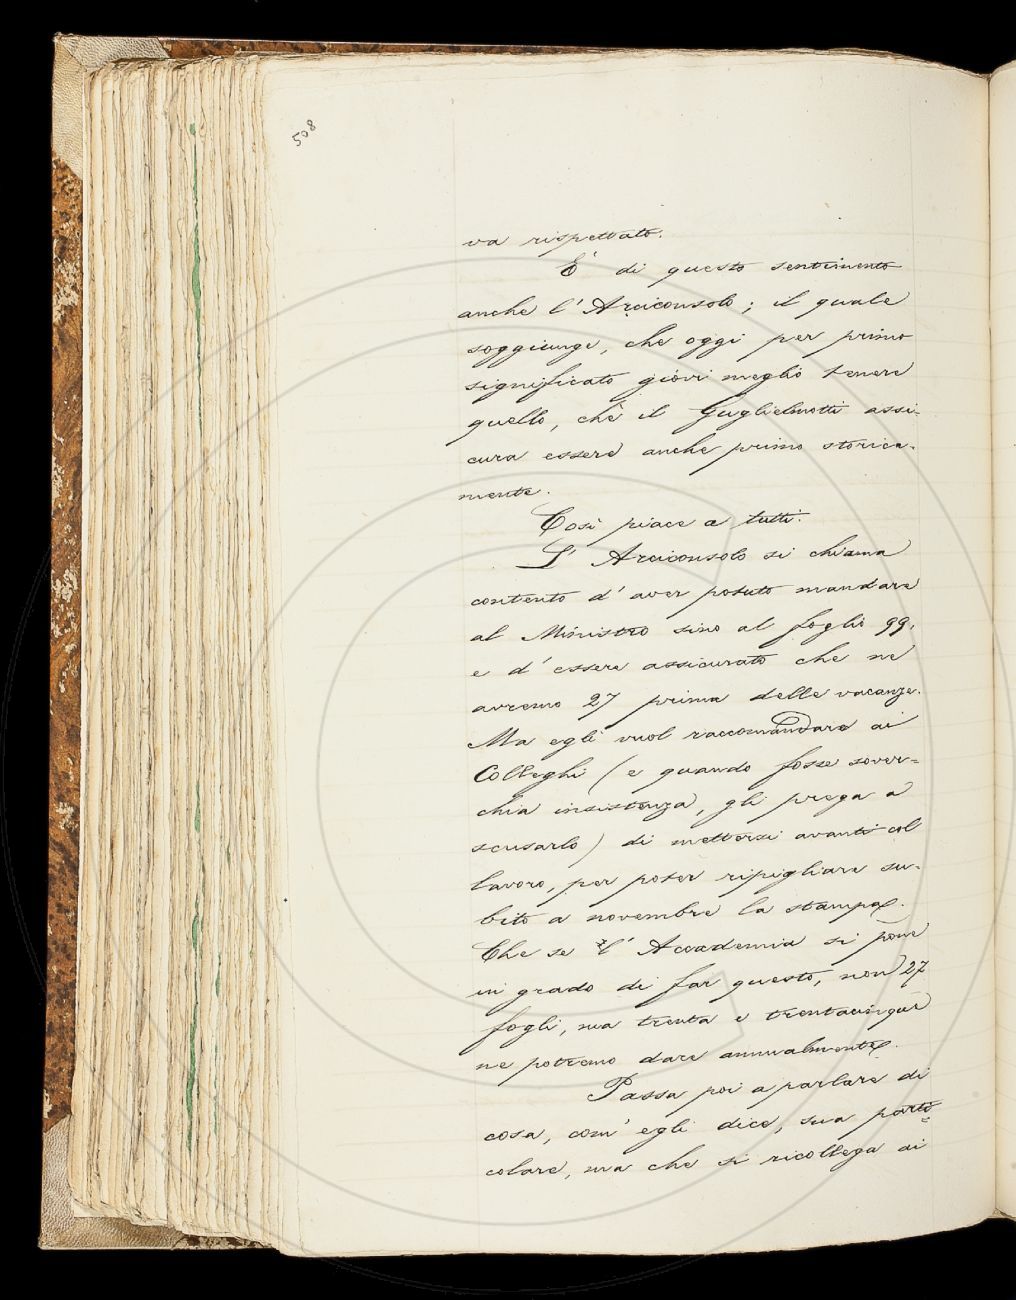 508
va rispettato.
È di questo sentimento
anche l'Arciconsolo; il quale
soggiunge, che oggi per primo
significato giovi meglio tenere
quello, che il Guglielmotti assi-
cura essere anche primo storica-
mente.
Così piace a tutti.
L'Arciconsolo si chiama
contento d'aver potuto mandare
al Ministro sino al foglio 99,
e d'essere assicurato che ne
avremo 27 prima delle vacanze.
Ma egli vuol raccomandare ai
Colleghi (e quando fosse sover-
chia insistenza, gli prega a
scusarlo) di mettersi avanti col
lavoro, per poter ripigliare su-
bito a novembre la stampa.
Che se l'Accademia si pone
in grado di far questo, non 27
fogli, ma trenta e trentacinque
ne potremo dare annualmente.
Passa poi a parlare di
cosa, com'egli dice, sua parti-
colare, ma che si ricollega ai